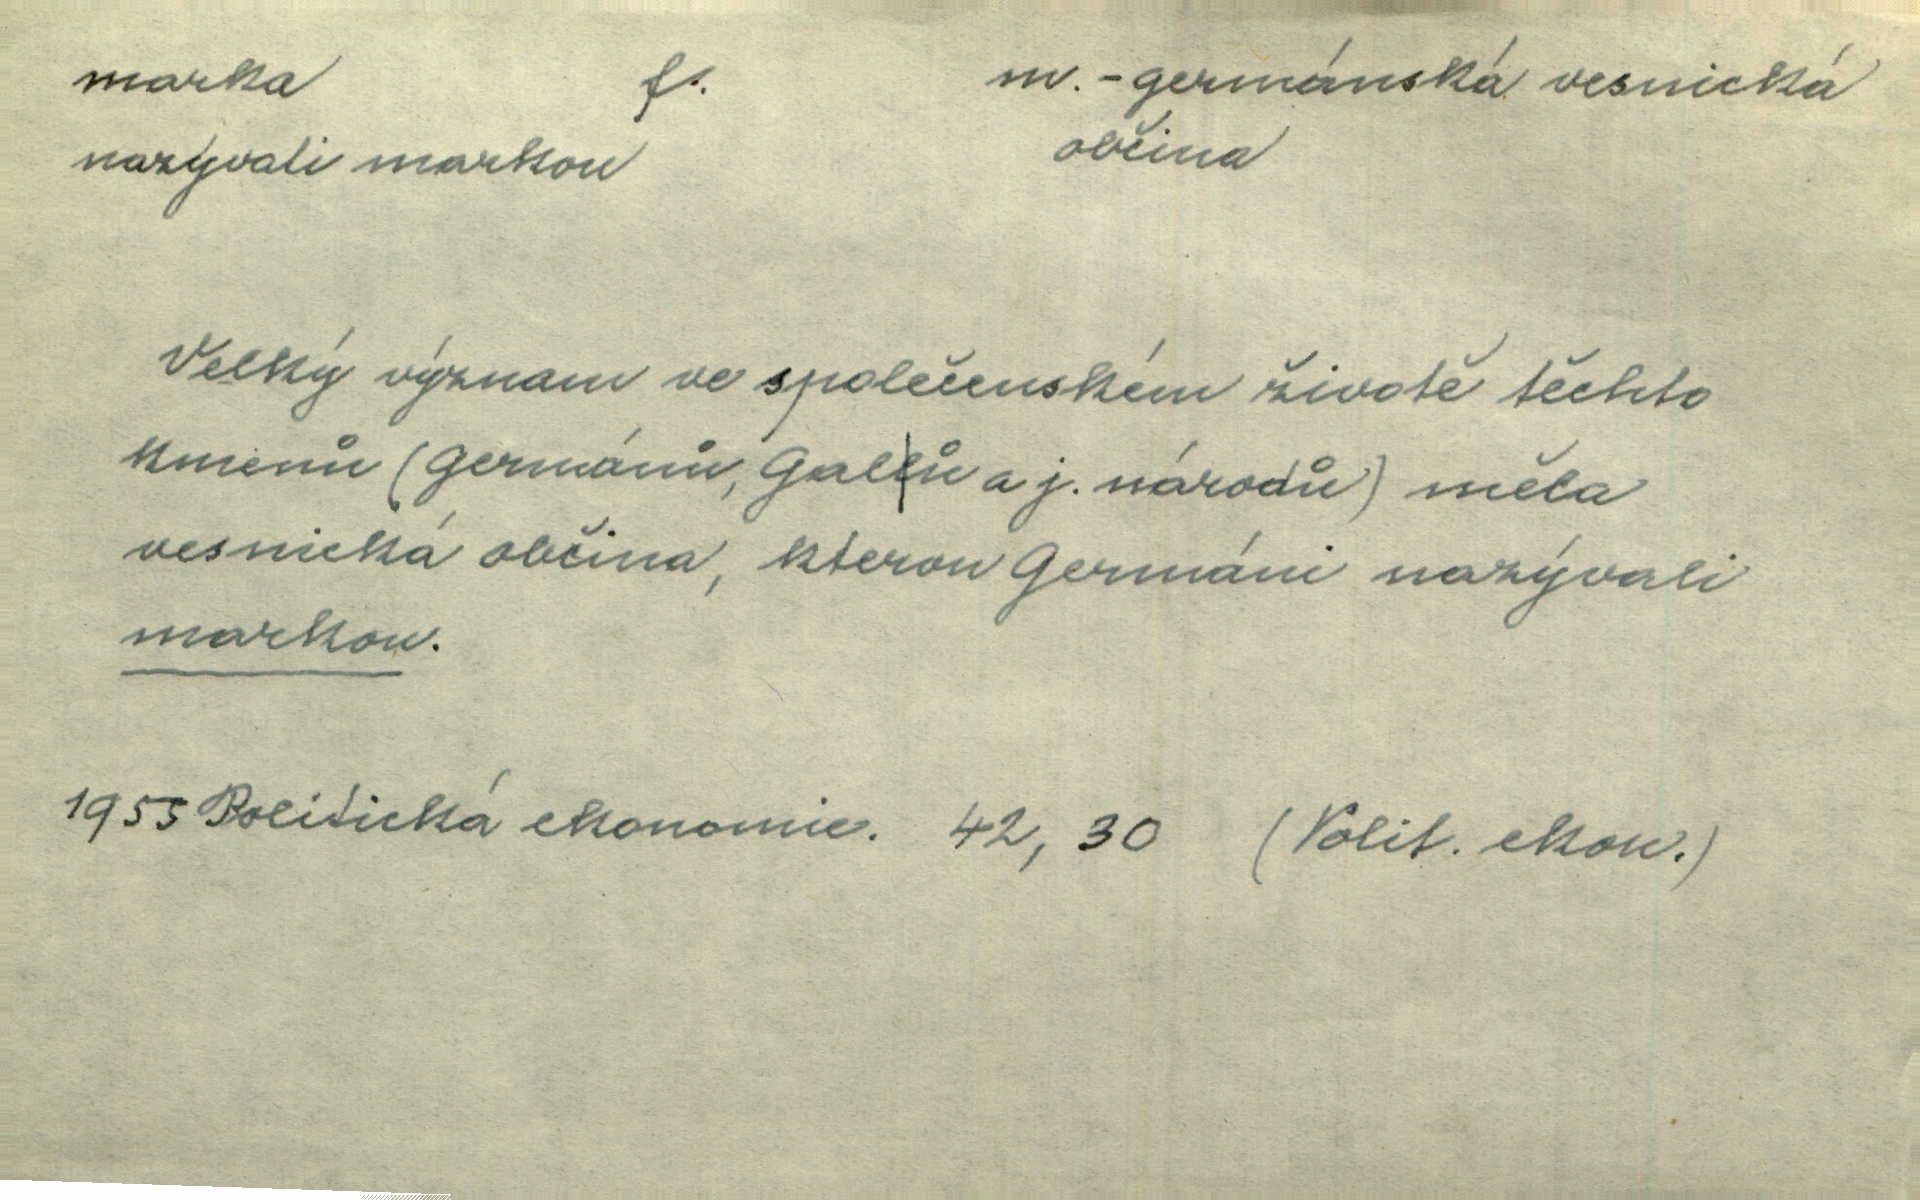 marka f. m. - germánská vesnická
nazývali markou občina
Velký význam ve společenském životě těchto
kmenů (Germánů, Gallů a j. národů) měla
vesnická občina, kterou Germáni nazývali
markou.
1955 Politická ekonomie. 42, 30 (Polit. ekon.)